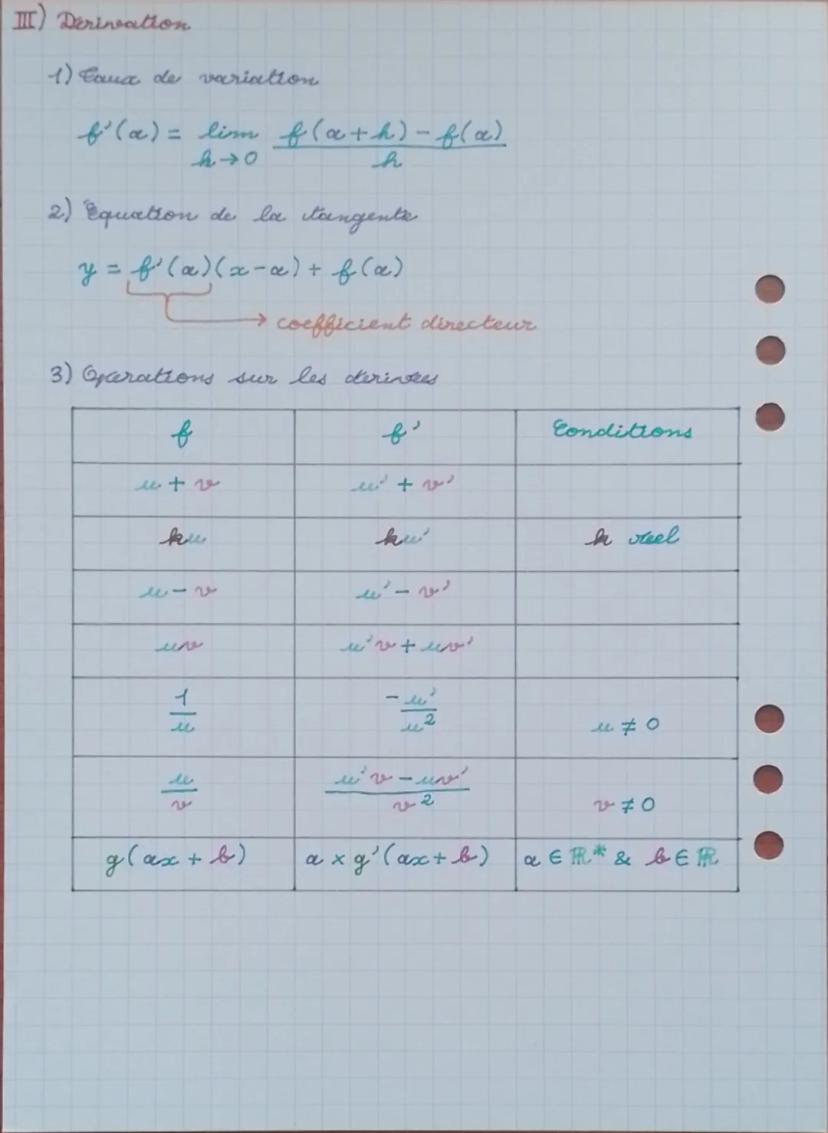 III) Dérivation
1) Taux de variation
f'(a) = lim h→0 f(a+h) - f(a) / h
2) Equation de la tangente
y = f'(a)(x-a) + f(a)
coefficient directeur
3) Opérations sur les dérivées
f f' Conditions
u + v u' + v'
ku ku' k réel
u - v u' - v'
uv u'v + uv'
1/u -u'/u² u ≠ 0
u/v u'v - uv'/v² v ≠ 0
g(ax + b) a × g'(ax + b) a ∈ ℝ* & b ∈ ℝ